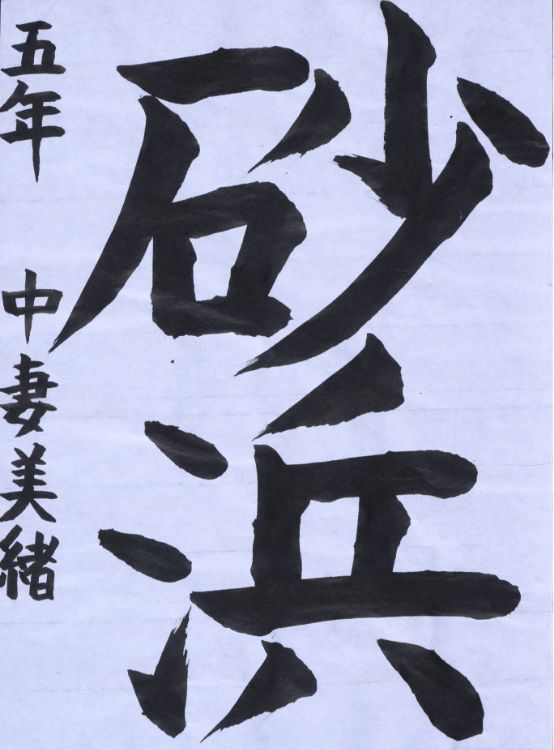 砂浜
五年 中妻美緒